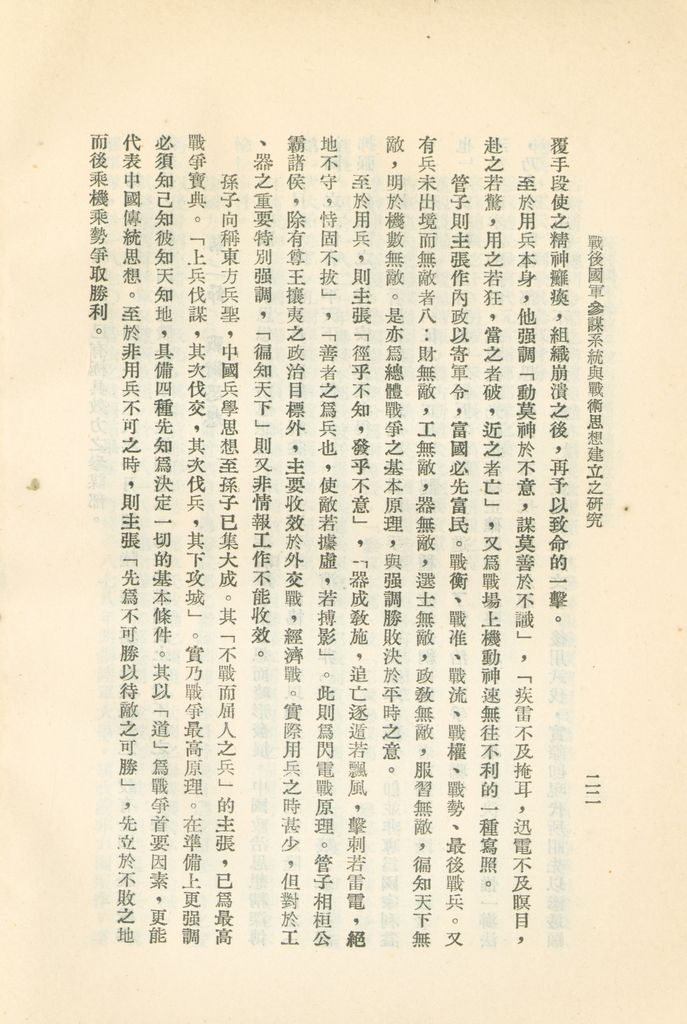 戰後國軍參謀系統與戰術思想建立之研究
二二
覆手段使之精神癱瘓，組織崩潰之後，再予以致命的一擊。
至於用兵本身，他强調「動莫神於不意，謀莫善於不識」，「疾雷不及掩耳，迅電不及瞑目，
赴之若驚，用之若狂，當之者破，近之者亡」，又爲戰場上機動神速無往不利的一種寫照。
管子則主張作內政以寄軍令，富國必先富民。戰衡、戰准、戰流、戰權、戰勢、最後戰兵。又
有兵未出境而無敵者八：財無敵，工無敵，器無敵，選士無敵，政敎無敵，服習無敵，徧知天下無
敵，明於機數無敵。是亦爲總體戰爭之基本原理，與强調勝敗決於平時之意。
至於用兵，則主張「徑乎不知，發乎不意」，「器成敎施，追亡逐遁若飄風，擊刺若雷電，絕
地不守，恃固不拔」，「善者之爲兵也，使敵若據虛，若搏影」。此則爲閃電戰原理。管子相桓公
霸諸侯，除有尊王攘夷之政治目標外，主要收效於外交戰，經濟戰。實際用兵之時甚少，但對於工
、器之重要特別强調，「徧知天下」則又非情報工作不能收效。
孫子向稱東方兵聖，中國兵學思想至孫子已集大成。其「不戰而屈人之兵」的主張，已爲最高
戰爭寶典。「上兵伐謀，其次伐交，其次伐兵，其下攻城」。實乃戰爭最高原理。在準備上更强調
必須知己知彼知天知地，具備四種先知爲決定一切的基本條件。其以「道」爲戰爭首要因素，更能
代表中國傳統思想。至於非用兵不可之時，則主張「先爲不可勝以待敵之可勝」，先立於不敗之地
而後乘機乘勢爭取勝利。